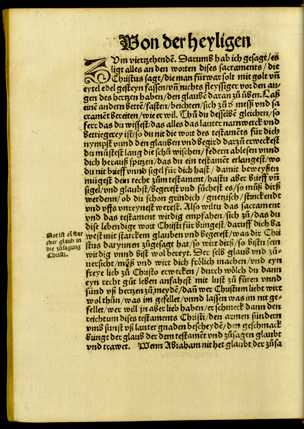 Von der heyligen
Zvm viertzehenden. Darumb hab ich gesagt/ es
ligt alles an den worten dises sacraments/ die
Christus sagt/ die man fürwar solt mit golt vñ
eytel edel gesteyn fassen/ vñ nichts fleyssiger vor den au-
gen des hertzen haben/ den glauben daran zu üben. Laß
einē andern bettē/ fasten/ beichten/ sich zů meß vnd sa-
crament bereiten/ wie er wil. Thů du desselbē gleichen/ so
ferr das du wissest/ das alles das lauter narrwerck vnd
betriegerey ist/ so du nit die wort des testamēts für dich
nympst vnnd den glauben vnd begird darzů erweckest
du müstest lang die schů wischen/ federn ablesen vnnd
dich herauß putzen/ das du ein testamēt erlangest/ wo
du nit brieff vnnd sigel für dich hast/ damit beweysen
mügest dein recht zům testament/ hastu aber brieff vñ
sigel/ vnd glaubst/ begerest vnd sůchest es/ so můß dirß
werden/ ob du schon grindich/ stinckend
vnd vffs vnreynest werest. Also wiltu das sacrament
vnd das testament wirdig empfahen/ sich zů/ das du
dise lebendige wort Christi für bringest/ daruff dich ba
west mit starckem glauben vnd begerest/ was dir Chri
stus darynnen zůgesagt hat/ so wirt dirß/ so bistu sein
wirdig vnnd bist wol bereyt. Der selb glaub vnd zů-
uersicht/ můß vnd wirt dich frölich machen/ vnd eyn
freye lieb zů Christo erwecken/ durch wölch du dann
eyn recht gůt leben anfahest mit lust zů füren vnnd
sünd vō hertzen zů meydē/ dañ wer Christum liebt wirt
wol thůn/ was im gefellet/ vnnd lassen was im nit ge-
fellet/ wer will in aber lieb haben/ er schmeck dann den
reichtum dises testaments Christi/ den armen sündern
vmb sunst vß lauter gnaden bescheydē/ den geschmack
bringt der glaub der dem testament vnd zůsagen glaubt
vnd trawet. Wenn Abraham nit het glaubt der zůsa